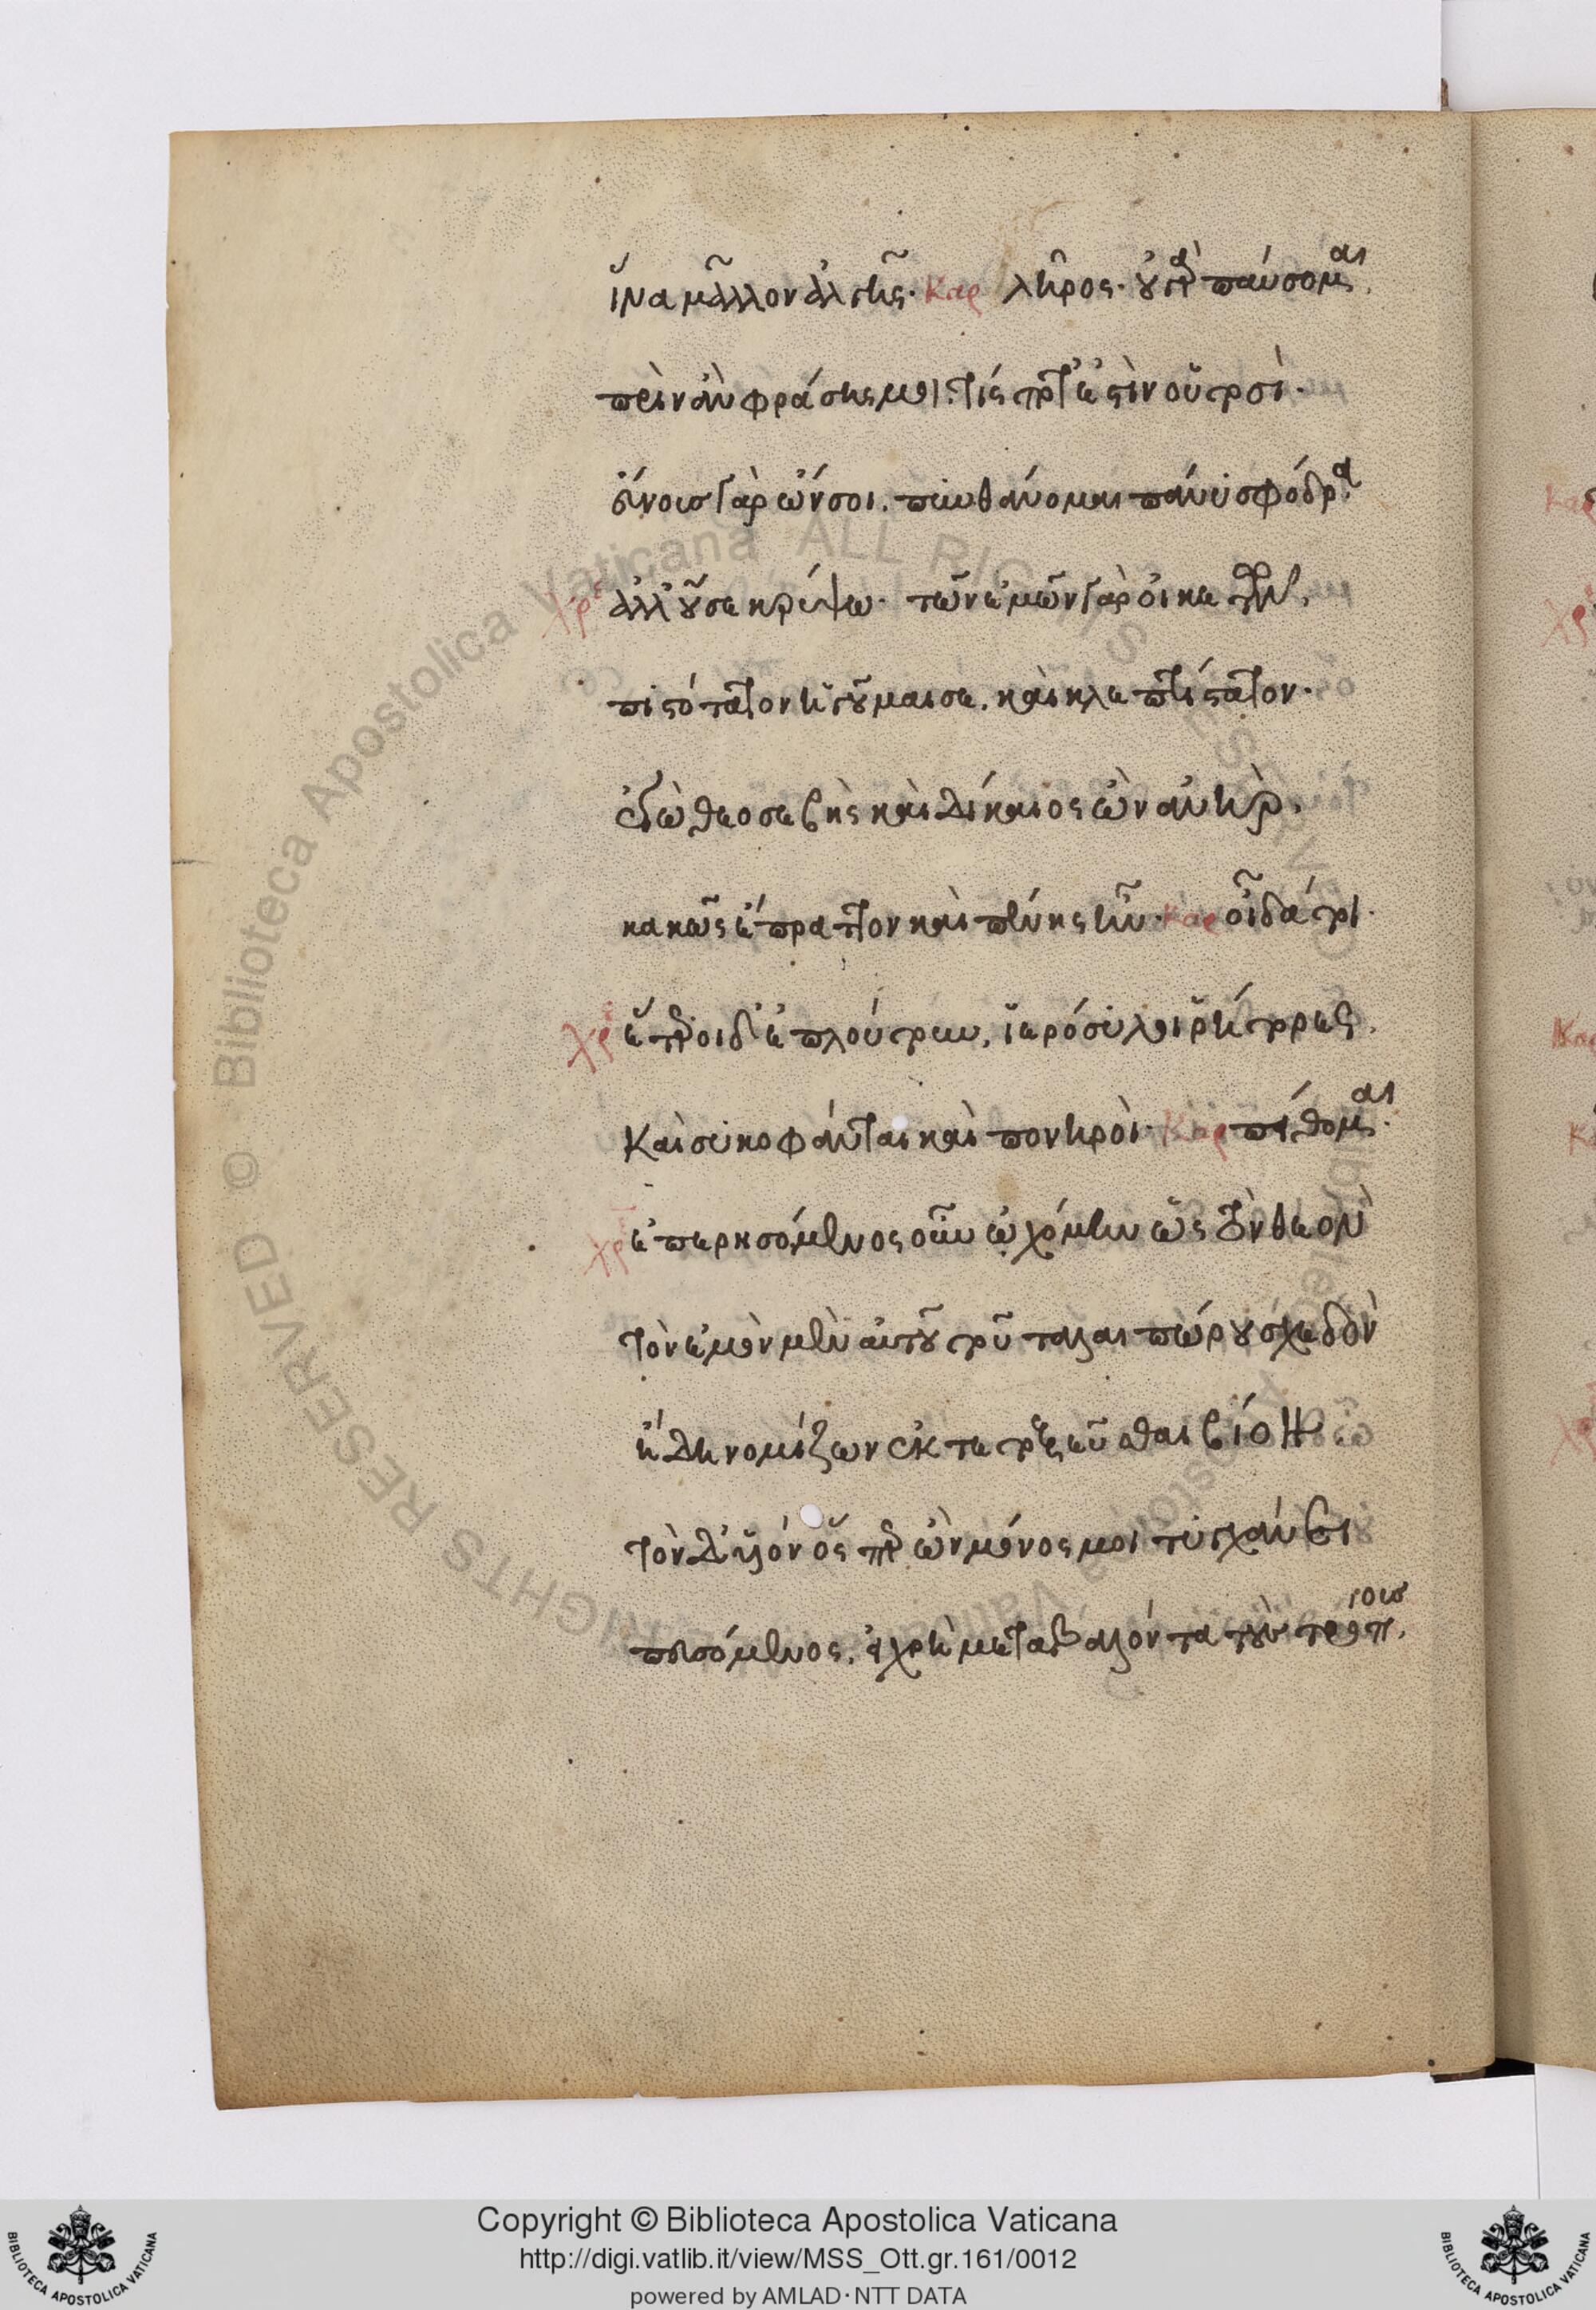 ἵνα μᾶλλον ἀλγῆς. Καρ λῆρος. οὐ γὰρ παύσομαι.
πρὶν ἂν φράσης μοι. τίς ποτ' ἐστὶν οὑτοσί.
εὔνους γὰρ ὤν σοι. πυνθάνομαι πάνυ σφόδρα
Χρε ἀλλ' οὔ σε κρύψω. τῶν ἐμῶν γὰρ οἰκετῶν.
πιστότατον ἡγοῦμαι σε. καὶ κλεπτίστατον.
ἐγὼ θεοσεβὴς καὶ δίκαιος ὢν ἀνὴρ.
κακῶς ἔπραττον καὶ πένης ἦν. Καρ οἶδά τοι.
χρε ἕτεροι δ' ἐπλούτουν, ἱερόσυλοι ῥήτορες.
Καὶ συκοφάνται καὶ πονηροὶ. Καρ πείθομαι.
χρε ἐπερησόμενος οὖν ὠχόμην ὡς τὸν θεὸν
τὸν ἐμὸν μὲν αὐτοῦ τοῦ ταλαιπώρου σχεδὸν
ἤδη νομίζων ἐκτετοξεῦσθαι βίον.
τὸν δ' υἱόν ὅσπερ ὢν μόνος μοι τυγχάνει
πευσόμενος. εἰ χρὴ μεταβαλόντα τοὺς τρόπους.
Copyright © Biblioteca Apostolica Vaticana
http://digi.vatlib.it/view/MSS_Ott.gr.161/0012
powered by AMLAD·NTT DATA